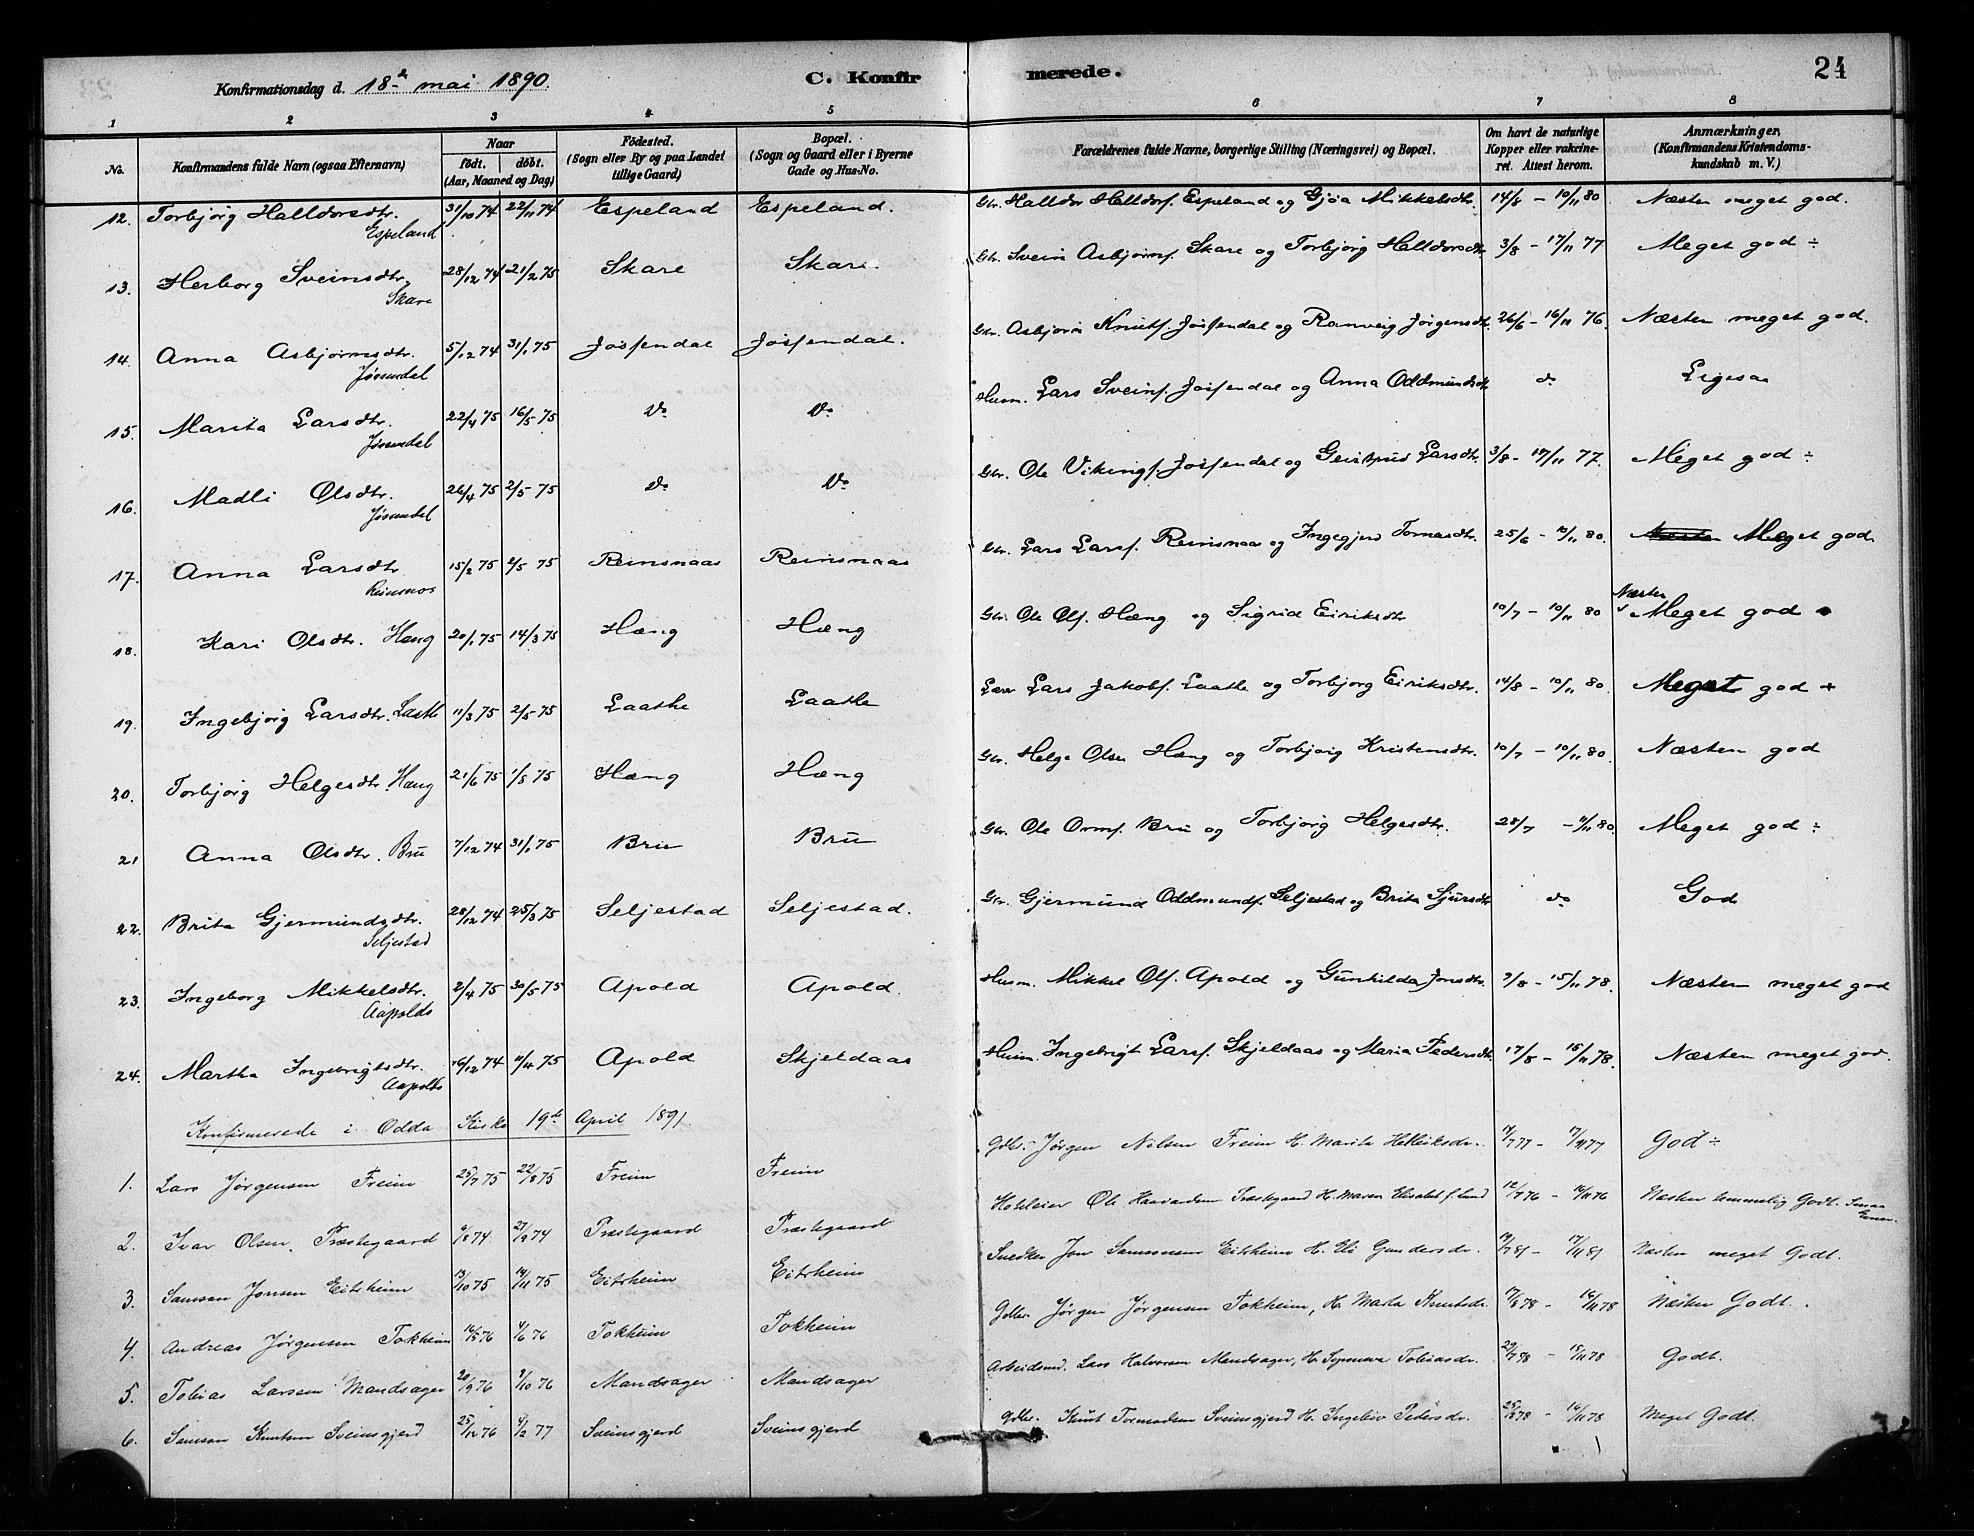 Konfirmationsdag d. 18de mai 1890.
C. Konfirmerede.
24
1 2 3 4 5 6 7 8
No.
Konfirmandens fulde Navn (ogsaa Efternavn)
Naar
födt. döbt.
(Aar, Maaned og Dag)
Födested.
(Sogn eller By og paa Landet tillige Gaard)
Bopæl.
(Sogn og Gaard eller i Byerne Gade og Hus-No.
Forældrenes fulde Navne, borgerlige Stilling (Næringsvei) og Bopæl.
Om havt de naturlige Kopper eller vakcineret. Attest herom.
Anmærkninger,
(Konfirmandens Kristendomskundskab m. V.)
12. Torbjörg Halldorsdtr. Espeland 31/10 74 22/11 74 Espeland Espeland. Gbr. Halldor Halldorf. Espeland og Gjöa Mikkelsdtr. 14/8 – 10/11 80 Næsten meget god.
13. Herborg Sveinsdtr. Skare 28/12 74 21/2 75 Skare Skare. Gbr. Svein Asbjörnf. Skare og Torbjörg Halldorsdtr 3/8 – 17/11 77 Meget god ÷
14. Anna Asbjörnsdtr. Jösendal 5/12 74 31/1 75 Jösfendal Jösfendal. Gbr. Asbjörn Knutf. Jösfendal og Ranveig Jörgensdtr. 26/6 – 16/11 76. Næsten meget god.
15. Marita Larsdtr. Jösendal 22/4 75 16/5 75 Do Do Husm. Lars Sveinf. Jösfendal og Anna Oddmundsdtr do Ligesaa
16. Madli Olsdtr. Jösendal 26/4 75 2/5 75 Do Do Gbr. Ole Vikingf. Jösfendal og Larsdtr. 3/8 – 17/11 77. Meget god ÷
17. Anna Larsdtr. Reinsnos 15/2 75 2/5 75 Reinsnaas Reinsnaas Gbr. Lars Larsf. Reinsnaas og Ingegjerd Tormasdtr. 25/6 – 11/11 80. Næsten Meget god.
18. Kari Olsdtr. Hæng 20/1 75 14/3 75 Hæng Hæng Gbr. Ole Olf. Hæng og Sigrid Eiriksdtr 10/7 – 10/11 80 Næsten Meget god
19. Ingebjörg Larsdtr. Laathe 11/3 75 2/5 75 Laathe Laathe Lars Jakobf. Laathe og Torbjörg Eiriksdtr. 14/8 – 10/11 80. Meget god +
20. Torbjörg Helgesdtr. Hæng 21/6 75 1/8 75 Hæng Hæng Gbr. Helge Olsen Hæng og Torbjörg Kristensdtr. 10/7 – 10/11 80. Næsten god
21 Anna Olsdtr. Bru 7/12 74 31/1 75 Bru Bru Gbr. Ole Ormf. Bru og Torbjörg Helgesdtr. 28/7 – 11/11 80. Meget god ÷
22. Brita Gjermundsdtr. Seljestad 28/12 74 25/3 75 Seljestad Seljestad. Gbr. Gjermund Oddmundf. Seljestad og Brita Sjursdtr do God
23. Ingeborg Mikkelsdtr. Aapolds 2/4 75 30/5 75 Apold Apold. Husm. Mikkel Olf. Apold og Gunhilda Jonsdtr. 9/8 – 15/11 78. Næsten meget god
24. Martha Ingebrigtsdtr. Aapolds 16/12 74 11/4 75 Apold Skjeldaas Husm. Ingebrigt Larsf. Skjeldaas og Maria Pedersdtr 17/8 – 15/11 78. Næsten meget god.
Konfirmerede i Odda Kirke 19de April 1891.
1. Lars Jörgensen Freim 25/7 75 22/8 75 Freim Freim Gdbr. Jörgen Nelsen Freim H. Marita Helleiksdr. 17/7 77 – 17/11 77 God ÷
2. Ivar Olsen Præstegaard 9/8 74 27/9 74 Præstegaard Præstegaard Hoteleier Ole Haavardsen Præstegaard H. Maren Elisabet f. Lund 12/7 76 – 16/11 76 Næsten temmelig Godt.
3. Samson Jonsen Eitrheim 13/10 75 14/11 75 Eitrheim Eitrheim Snedker Jon Samsonsen Eitrheim H. Eli Gundersdr. 19/7 81 – 17/11 81 Næsten meget Godt.
4. Andreas Jörgensen Tokheim 16/5 76 4/6 76 Tokheim Tokheim Gdbr. Jörgen Jörgensen Tokheim, H. Marta Knutsdr. 17/8 78 – 16/11 78 Næsten Godt.
5. Tobias Larsen Mandsager 20/9 76 9/10 76 Mandsager Mandsager Arbeidsmd. Lars Halvorsen Mandsager, H. Synneva Tobiasdr. – 15/11 78 Godt.
6. Samson Knutsen Sveinsgjerd 25/12 76 4/2 77 Sveinsgjerd Sveinsgjerd Gdbr. Knut Tormodsen Sveinsgjerd H. Ingebor Pedersdr. 25/8 78 – 16/11 78 Meget Godt.